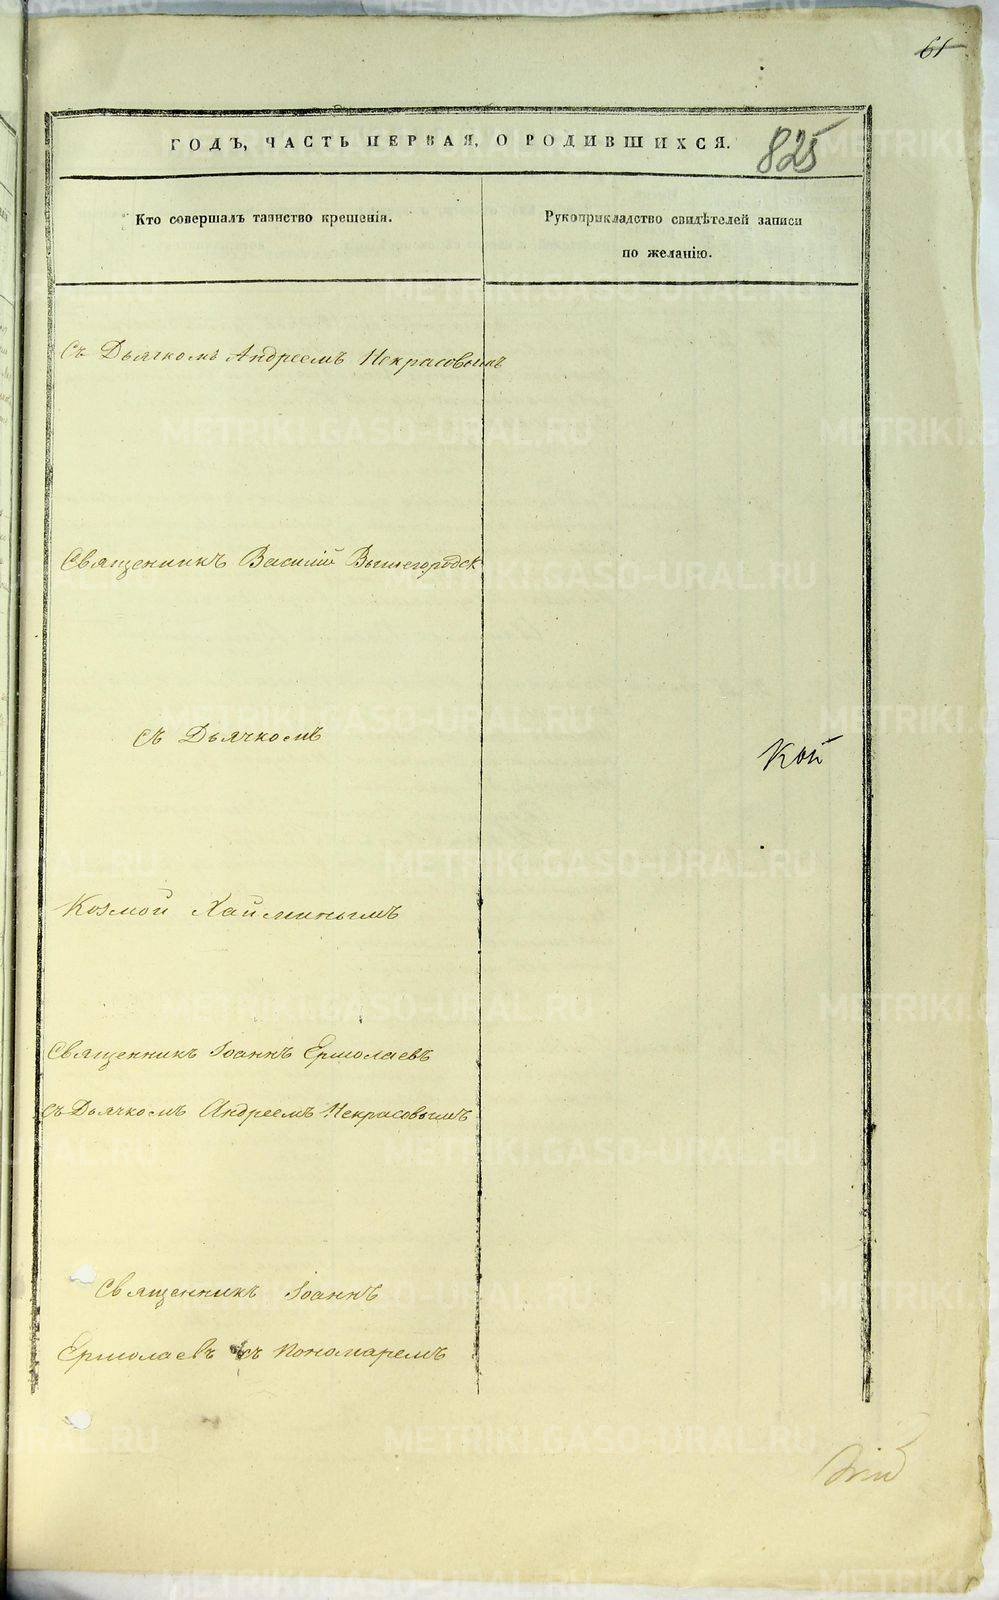 61
ГОДЪ, ЧАСТЬ ПЕРВАЯ, О РОДИВШИХСЯ.
825
Кто совершалъ таинство крещенія.
Рукоприкладство свидѣтелей записи
по желанію.
Съ Дьячкомъ Андреемъ Некрасовымъ
Священникъ Василій Вышегородск
съ Дьячкомъ
Кой
Козмой Хайминымъ
Священникъ Іоаннъ Ермолаевъ
съ Дьячкомъ Андреемъ Некрасовымъ
Священникъ Іоаннъ
Ермолаевъ съ Пономаремъ
METRIKI.GASO-URAL.RU